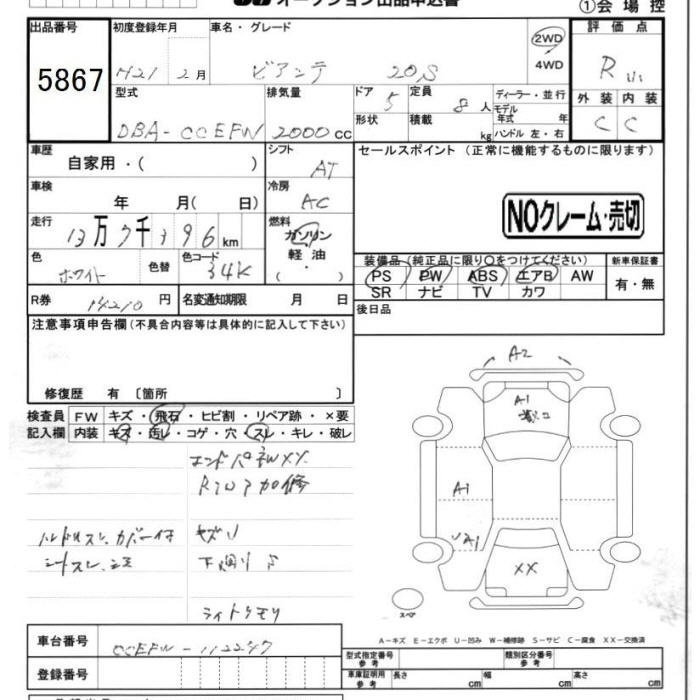 オークション出品申込書
①会場控
出品番号 初度登録年月 車名・グレード 2WD 評価点
5867 H21 2月 ビアンテ 20S 4WD R
型式 排気量 ドア 5 定員 8人 ディーラー・並行 外装 内装
DBA-CCEFW 2000cc 形状 積載 kg モデル年式 年 ハンドル 左・右 C C
車歴 自家用・( ) シフト AT セールスポイント (正常に機能するものに限ります)
車検 年 月( 日) 冷房 AC
NOクレーム・売切
走行 13万7千396km 燃料 ガソリン 軽油 ・ ( )
色 ホワイト 色替 色コード 34K
装備品(純正品に限り○をつけてください) 新車保証書
PS PW ABS エアB AW 有・無
SR ナビ TV カワ
R券 14210円 名変通知期限 月 日 後日品
注意事項申告欄(不具合内容等は具体的に記入して下さい)
修復歴 有 〔箇所 〕
検査員 FW キズ・飛石・ヒビ割・リペア跡・×要
記入欄 内装 キズ・汚レ・コゲ・穴・スレ・キレ・破レ
エンドパネルXX
Rフロア加修
ハンドルスレ カバー付
シートスレ
下廻りS
ライトクモリ
A2
A1
A1
UA1
XX
スペア
A-キズ E-エクボ U-凹み W-補修跡 S-サビ C-腐食 XX-交換済
車台番号 CCEFW-112247
型式指定番号 参考 類別区分番号 参考
登録番号 車庫証明用 参考 長さ cm 幅 cm 高さ cm